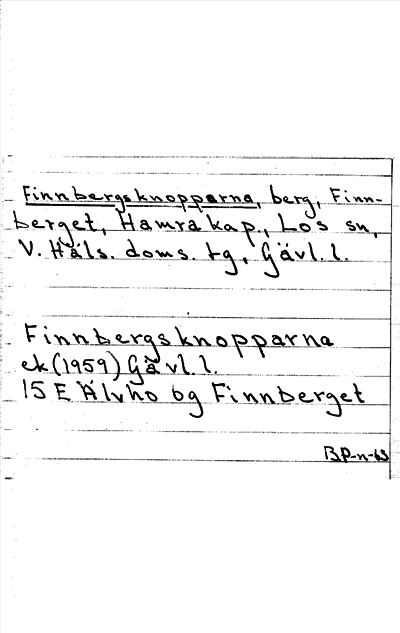 Finnbergsknopparna, berg, Finn-
berget, Hamra kap., Los sn,
V. Häls. doms. tg, Gävl. l.
Finnbergsknopparna
ek (1959) Gävl. l.
15 E Älvho 6g Finnberget